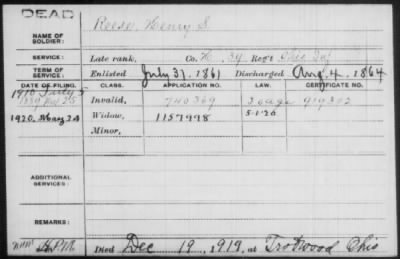 DEAD
NAME OF SOLDIER: Reese, Henry S.
SERVICE: Late rank, Co. H, 39 Reg't Ohio Inf
TERM OF SERVICE: Enlisted July 31, 1861 Discharged Aug. 4, 1864
DATE OF FILING. CLASS. APPLICATION NO. LAW. CERTIFICATE NO.
1910 July 5
1889 25 Invalid, 740369 919302
1920, May 24 Widow, 1157998 5-1-20
Minor,
ADDITIONAL SERVICES:
REMARKS:
Died Dec 19, 1919, at Trotwood Ohio